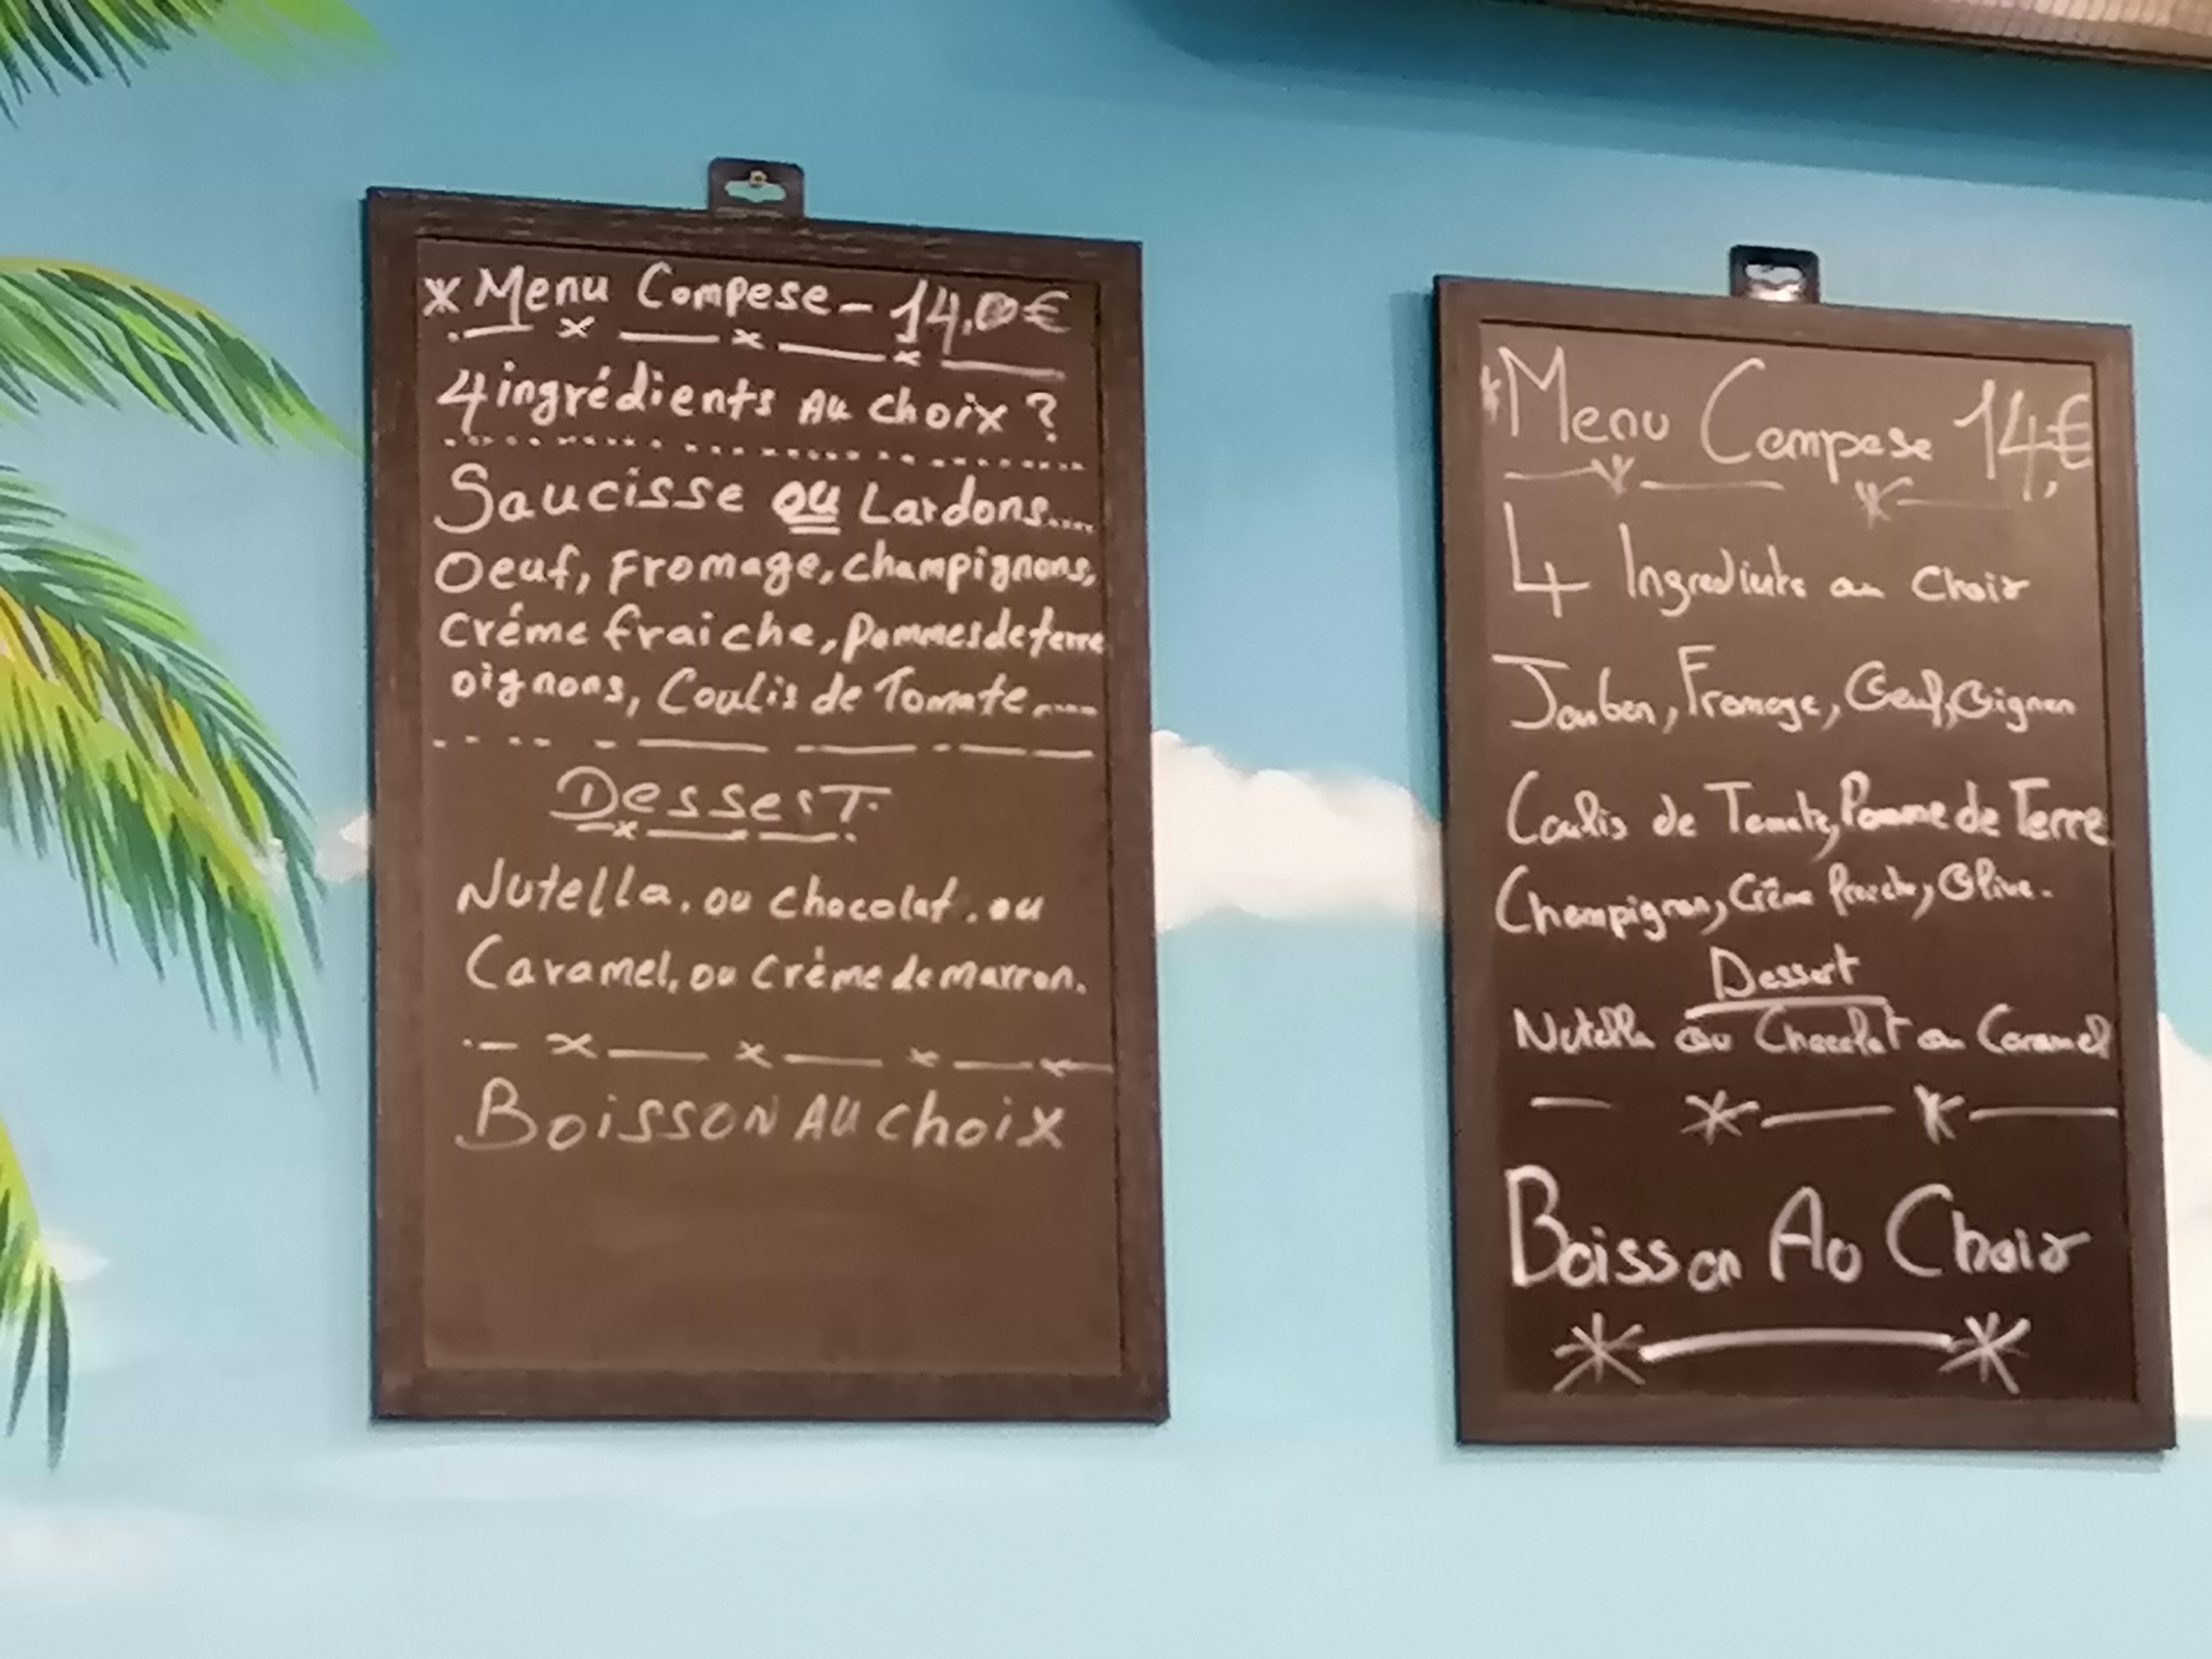 Menu Compese - 14,00€
4 ingrédients Au choix ?
Saucisse ou Lardons....
Oeuf, Fromage, champignons,
créme fraiche, pommes de terre
oignons, Coulis de Tomate,....
Dessert
Nutella, ou chocolat. ou
Caramel, ou crème de marron.
BOISSON AU choix
Menu Compese 14,€
4 Ingredients au choix
Jambon, Fromage, Oeuf, Oignon
Coulis de Tomate, Pomme de Terre
Champignon, Crême fraiche, Olive.
Dessert
Nutella ou Chocolat ou Caramel
Boisson Au Choix